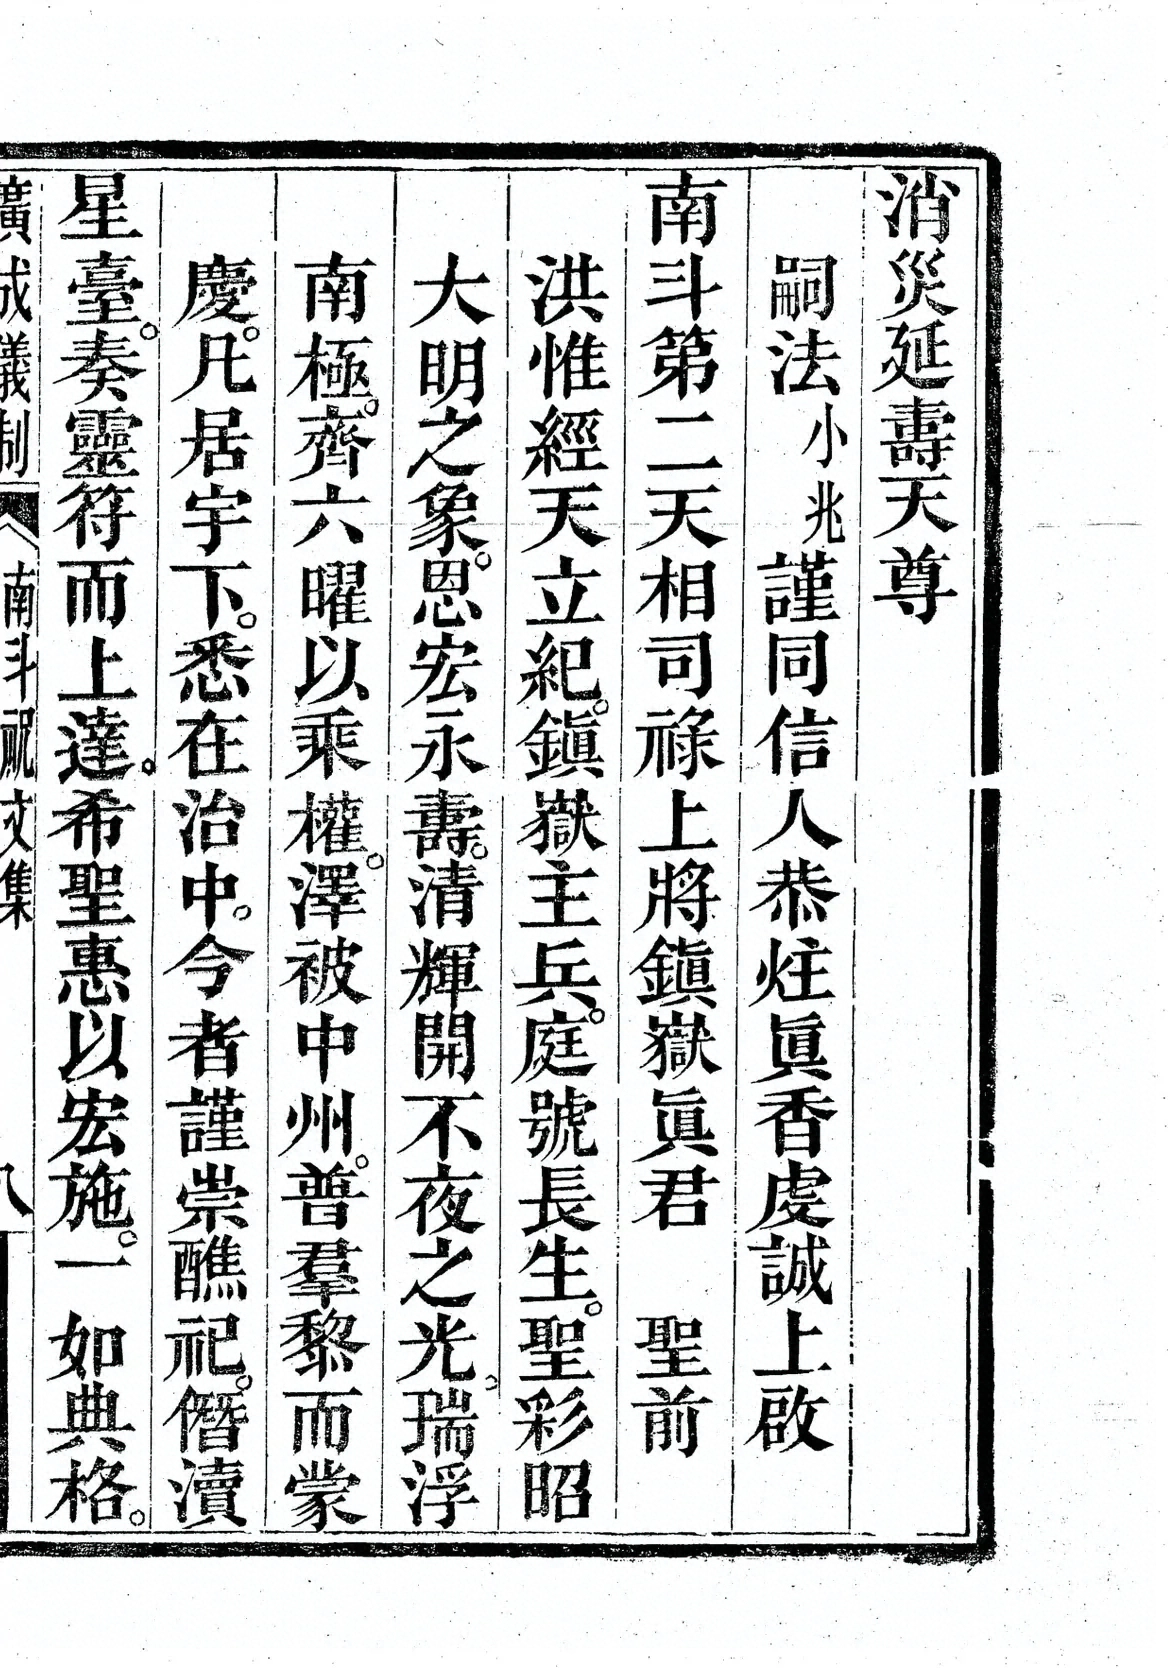 消災延壽天尊
嗣法小兆謹同信人恭炷眞香虔誠上啟
南斗第二天相司祿上將鎭嶽眞君　聖前
洪惟經天立紀。鎭嶽主兵。庭號長生。聖彩昭
大明之象。恩宏永壽。清輝開不夜之光。瑞浮
南極。齊六曜以乘權。澤被中州。普羣黎而蒙
慶。凡居宇下。悉在治中。今者謹崇醮祀。僭瀆
星臺。奏靈符而上達。希聖惠以宏施。一如典格。
廣成儀制　南斗祝文集　八